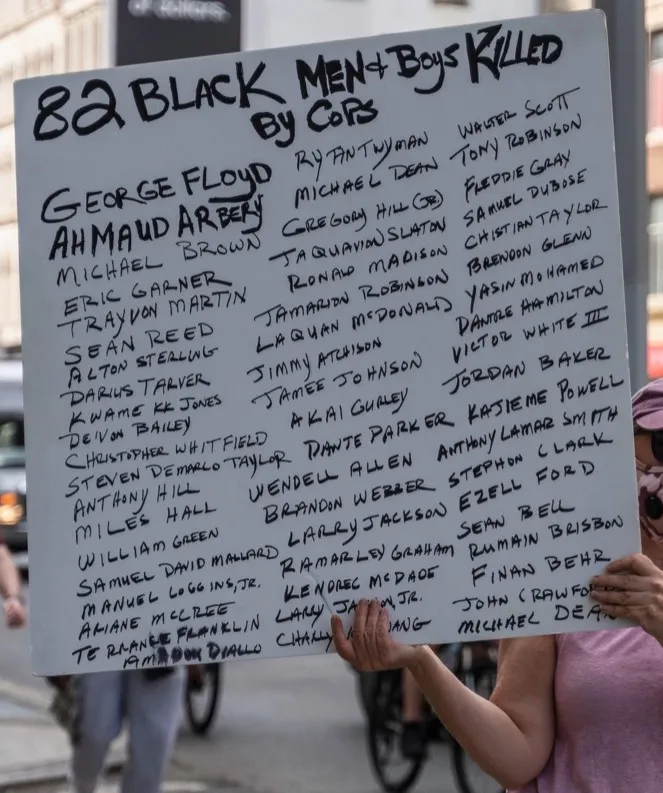 of dollars.
82 BLACK MEN & BOYS KILLED
BY COPS
GEORGE FLOYD
AHMAUD ARBERY
MICHAEL BROWN
ERIC GARNER
TRAYVON MARTIN
SEAN REED
ALTON STERLING
DARIUS TARVER
KWAME KK JONES
DEIVON BAILEY
CHRISTOPHER WHITFIELD
STEVEN DEMARCO TAYLOR
ANTHONY HILL
MILES HALL
WILLIAM GREEN
SAMUEL DAVID MALLARD
MANUEL LOGGINS, JR.
ARIANE MCCREE
TERRANCE FRANKLIN
AMADOU DIALLO
RYAN TWYMAN
MICHAEL DEAN
GREGORY HILL (JR)
JAQUAVION SLATON
RONALD MADISON
JAMARION ROBINSON
LAQUAN McDONALD
JIMMY ATCHISON
JAMEE JOHNSON
AKAI GURLEY
DANTE PARKER
WENDELL ALLEN
BRANDON WEBBER
LARRY JACKSON
RAMARLEY GRAHAM
KENDREC McDADE
LARRY JR.
WALTER SCOTT
TONY ROBINSON
FREDDIE GRAY
SAMUEL DUBOSE
CHISTIAN TAYLOR
BRENDON GLENN
YASIN MOHAMED
DANTRE HAMILTON
VICTOR WHITE III
JORDAN BAKER
KAJIEME POWELL
ANTHONY LAMAR SMITH
STEPHON CLARK
EZELL FORD
SEAN BELL
RUMAIN BRISBON
FINAN BEHR
JOHN CRAWFO
MICHAEL DEAN